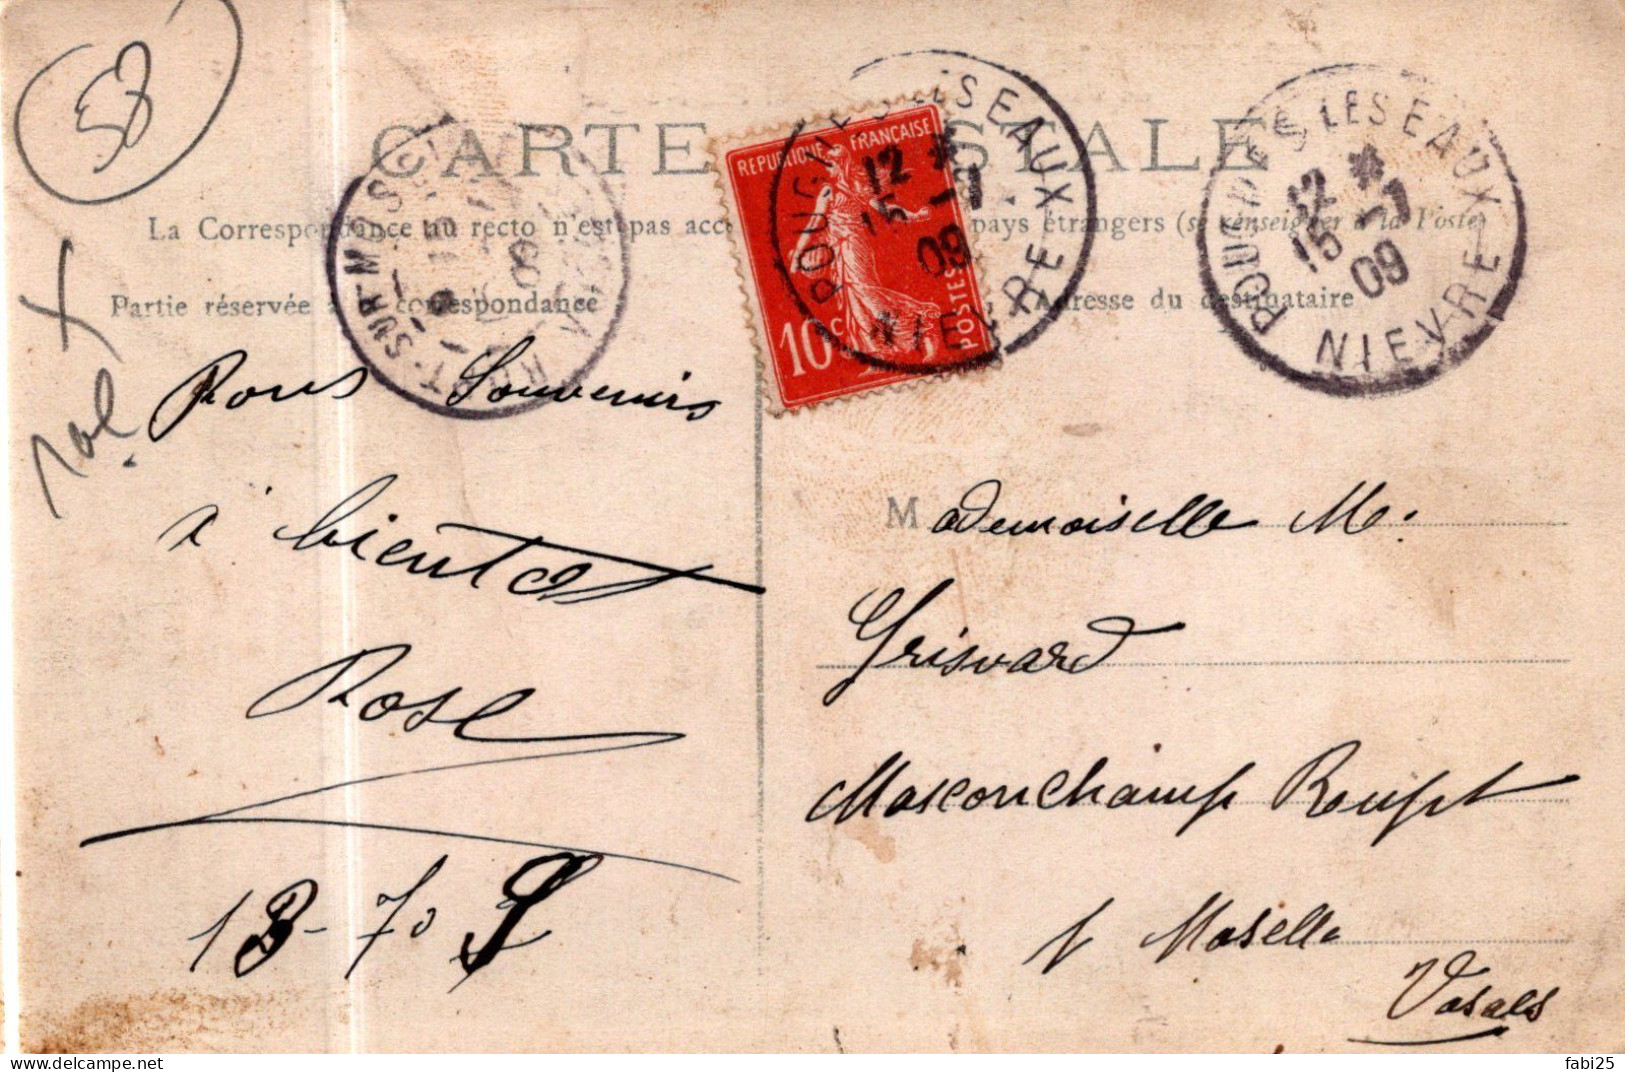 58
CARTE POSTALE
La Correspondance au recto n'est pas acc pays étrangers (se renseigner à la Poste)
Partie réservée à la correspondance
Adresse du destinataire
REPUBLIQUE FRANÇAISE
10c
POSTES
POUGUES LES EAUX
12 *
15 -7
09
NIEVRE
POUGUES LES EAUX
12 *
15 -7
09
NIEVRE
T-SUR-MOSE
09
Bons Souvenirs
à bientot
Rose
13-7-09
Mademoiselle M.
Grisvard
Maxonchamp Rupt
s/ Moselle
Vosges
fabi25